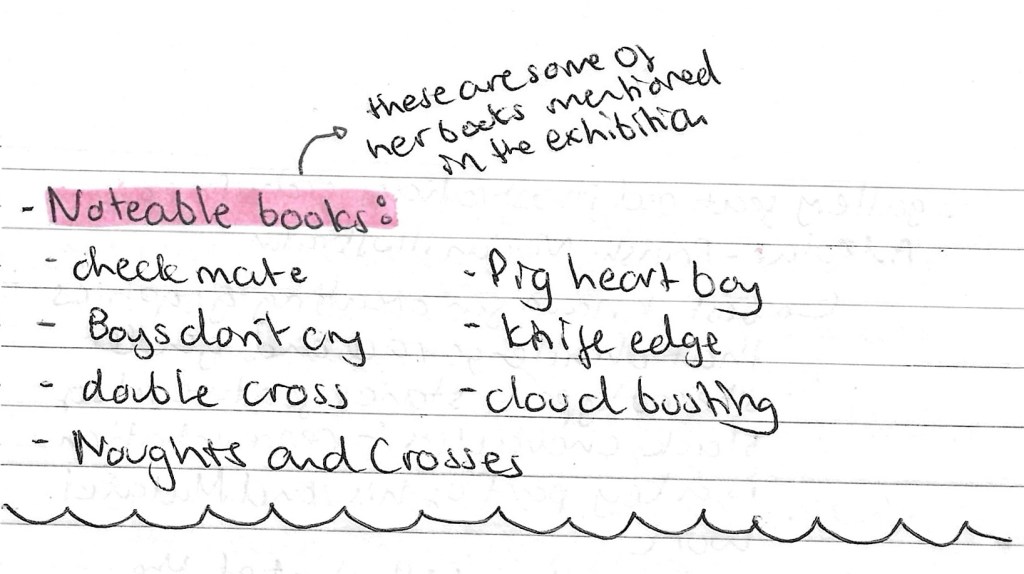 these are some of
her books mentioned
in the exhibition
- Noteable books:
- checkmate
- Boys don't cry
- double cross
- Noughts and Crosses
- Pig heart boy
- knife edge
- cloud busting